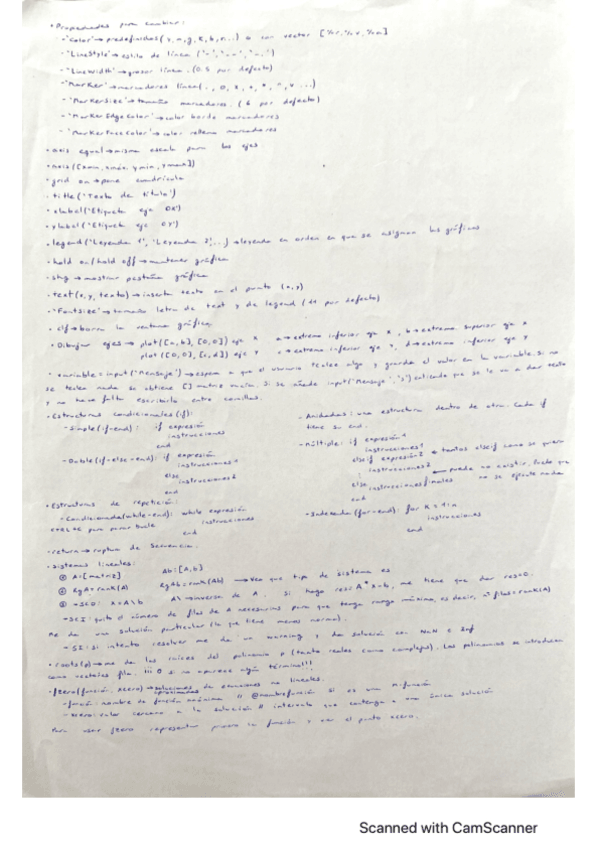 • Propiedades para cambiar:
- 'Color' → predefinidos (y, m, g, k, b, r...) o con vector
- 'LineStyle' → estilo de línea ('-', '--', '-.')
- 'LineWidth' → grosor línea. (0.5 por defecto)
- 'Marker' → marcadores línea
- 'MarkerSize' → tamaño marcadores. (6 por defecto)
- 'MarkerEdgeColor' → color borde marcadores
- 'MarkerFaceColor' → color relleno marcadores
• axis equal → misma escala para los ejes
• axis([xmin, xmáx, ymin, ymax])
• grid on → pone cuadrícula
• title('Texto de título')
• xlabel('Etiqueta eje OX')
• ylabel('Etiqueta eje OY')
• legend('Leyenda 1', 'Leyenda 2',...) → leyenda en orden en que se asignan las gráficas
• hold on/hold off → mantener gráfica
• shg → mostrar pestaña gráfica
• text(x,y, texto) → inserta texto en el punto (x,y)
• 'FontSize' → tamaño letra de text y de legend (11 por defecto)
• clf → borra la ventana gráfica
• Dibujar ejes → plot([a,b], [0,0]) eje x a → extremo inferior eje x, b → extremo superior eje x
plot([0,0], [c,d]) eje Y c → extremo inferior eje Y, d → extremo inferior eje Y
• variable = input('Mensaje') → espera a que el usuario teclee algo y guarda el valor en la variable. Si no
se teclea nada se obtiene [] matriz vacía. Si se añade input('Mensaje','s') entiende que se le va a dar texto
y no hace falta escribirlo entre comillas.
• Estructuras condicionales (if):
- Simple (if-end): if expresión
instrucciones
end
- Doble (if-else-end): if expresión
instrucciones1
else
instrucciones2
end
- Anidadas: una estructura dentro de otra. Cada if
tiene su end.
- Múltiple: if expresión1
instrucciones1
elseif expresión2 ← tantos elseif como se quiera
instrucciones2
else ← puede no existir, hasta que
instrucciones finales no se ejecute nada
end
• Estructuras de repetición:
- Condicionada (while-end): while expresión
instrucciones
end
para parar bucle
- Indexada (for-end): for k = 1:n
instrucciones
end
• return → ruptura de secuencia.
• Sistemas lineales:
① A=[matriz] Ab=[A,b]
② RgA=rank(A) RgAb=rank(Ab) → Veo que tipo de sistema es
③ -SCD: X=A\b A\ → inversa de A. Si hago res=A*x-b, me tiene que dar res=0.
- SCI: quito el número de filas de A necesarias para que tenga rango máximo, es decir, nº filas=rank(A)
Me da una solución particular (la que tiene menos norma).
- SI: si intento resolver me da un warning y da solución con NaN o Inf
• roots(p) → me da las raíces del polinomio p (tanto reales como complejas). Los polinomios se introducen
como vectores fila. !!! 0 si no aparece algún término!!!
• fzero(función, xcero) → soluciones aproximadas de ecuaciones no lineales.
- función: nombre de función anónima // @nombrefunción si es una M-función
- xcero: valor cercano a la solución // intervalo que contenga a una única solución
Para usar fzero representar primero la función y ver el punto xcero.
Scanned with CamScanner